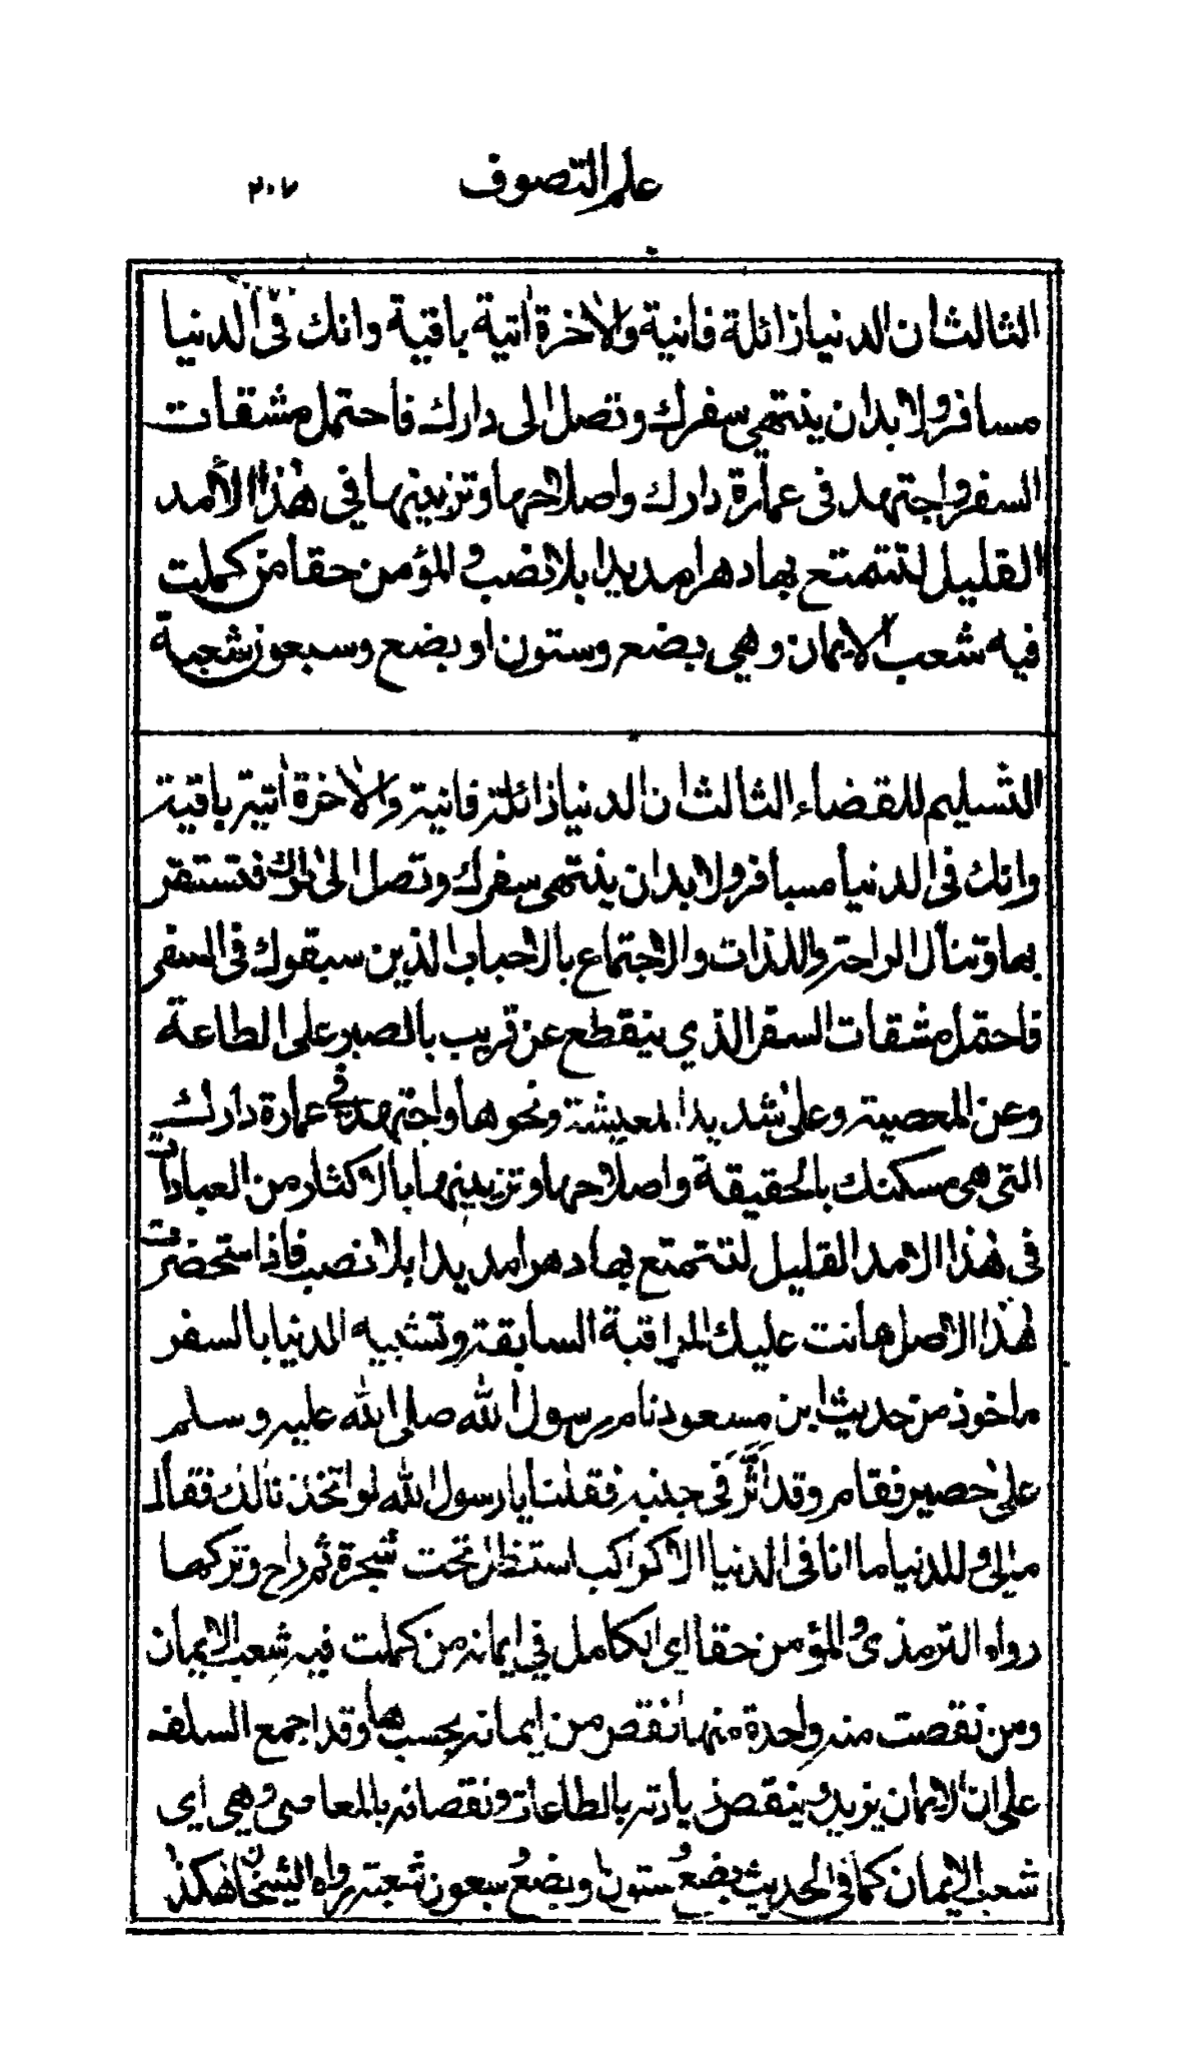 علم التصوف ٢٠٧
الثالث ان الدنيا زائلة فانية والاخرة اتية باقية وانك فى الدنيا
مسافر ولا بد ان ينتهى سفرك وتصل الى دارك فاحتمل مشقات
السفر واجتهد فى عمارة دارك واصلاحها وتزيينها فى هذا الأمد
القليل لتتمتع بها دهرا مديدا بلا نصب والمؤمن حقا من كملت
فيه شعب الايمان وهى بضع وستون او بضع وسبعون شعبة
التسليم للقضاء الثالث ان الدنيا زائلة فانية والاخرة اتية باقية
وانك فى الدنيا مسافر ولا بد ان ينتهى سفرك وتصل الى دارك فتستقر
بها وتنال الراحة واللذات والاجتماع بالاحباب الذين سبقوك فى السفر
فاحتمل مشقات السفر الذي ينقطع عن قريب بالصبر على الطاعة
وعن المعصية وعلى شديد المعيشة ونحوها واجتهد فى عمارة دارك
التى هى مسكنك بالحقيقة واصلاحها وتزيينها بالاكثار من العبادات
فى هذا الامد القليل لتتمتع بها دهرا مديدا بلا نصب فاذا استحضرت
هذا الاصل هانت عليك المراقبة السابقة وتشبيه الدنيا بالسفر
ماخوذ من حديث ابن مسعود نام رسول الله صلى الله عليه وسلم
على حصير فقام وقد اثّر فى جنبه فقلنا يا رسول الله لو اتخذنا لك فقال
مالى وللدنيا ما انا فى الدنيا الا كراكب استظل تحت شجرة ثم راح وتركها
رواه الترمذى والمؤمن حقا اى الكامل فى ايمانه من كملت فيه شعب الايمان
ومن نقصت منه واحدة منها نقص من ايمانه بحسبها وقد اجمع السلف
على ان الايمان يزيد وينقص زيادته بالطاعات ونقصانه بالمعاصى وهى اى
شعب الايمان كما فى الحديث بضع وستون او بضع وسبعون شعبة رواه الشيخان هكذا